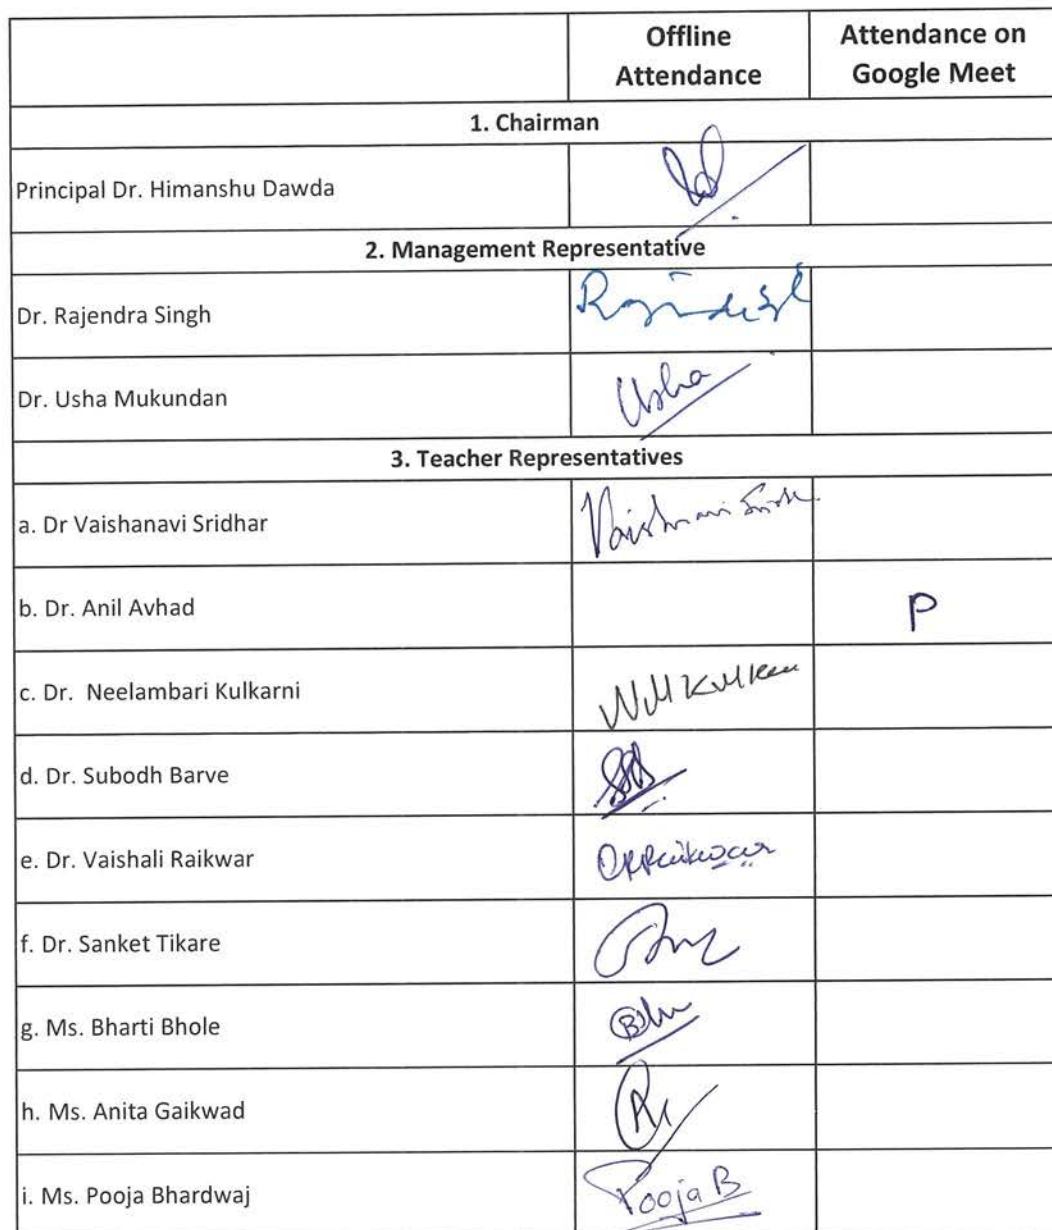 Offline Attendance
Attendance on Google Meet
1. Chairman
Principal Dr. Himanshu Dawda
2. Management Representative
Dr. Rajendra Singh
Dr. Usha Mukundan Usha
3. Teacher Representatives
a. Dr Vaishanavi Sridhar
b. Dr. Anil Avhad P
c. Dr. Neelambari Kulkarni
d. Dr. Subodh Barve
e. Dr. Vaishali Raikwar
f. Dr. Sanket Tikare
g. Ms. Bharti Bhole
h. Ms. Anita Gaikwad
i. Ms. Pooja Bhardwaj Pooja B